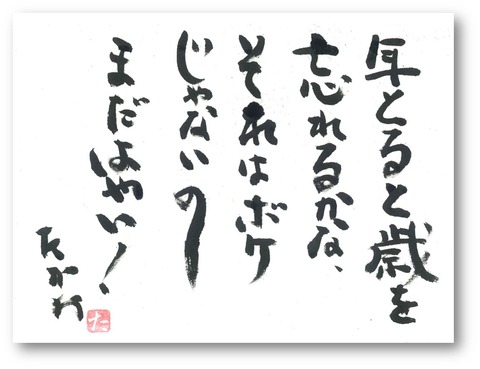 年とると歳を
忘れるかな、
それはボケ
じゃないの
まだはやい!
たかね
た